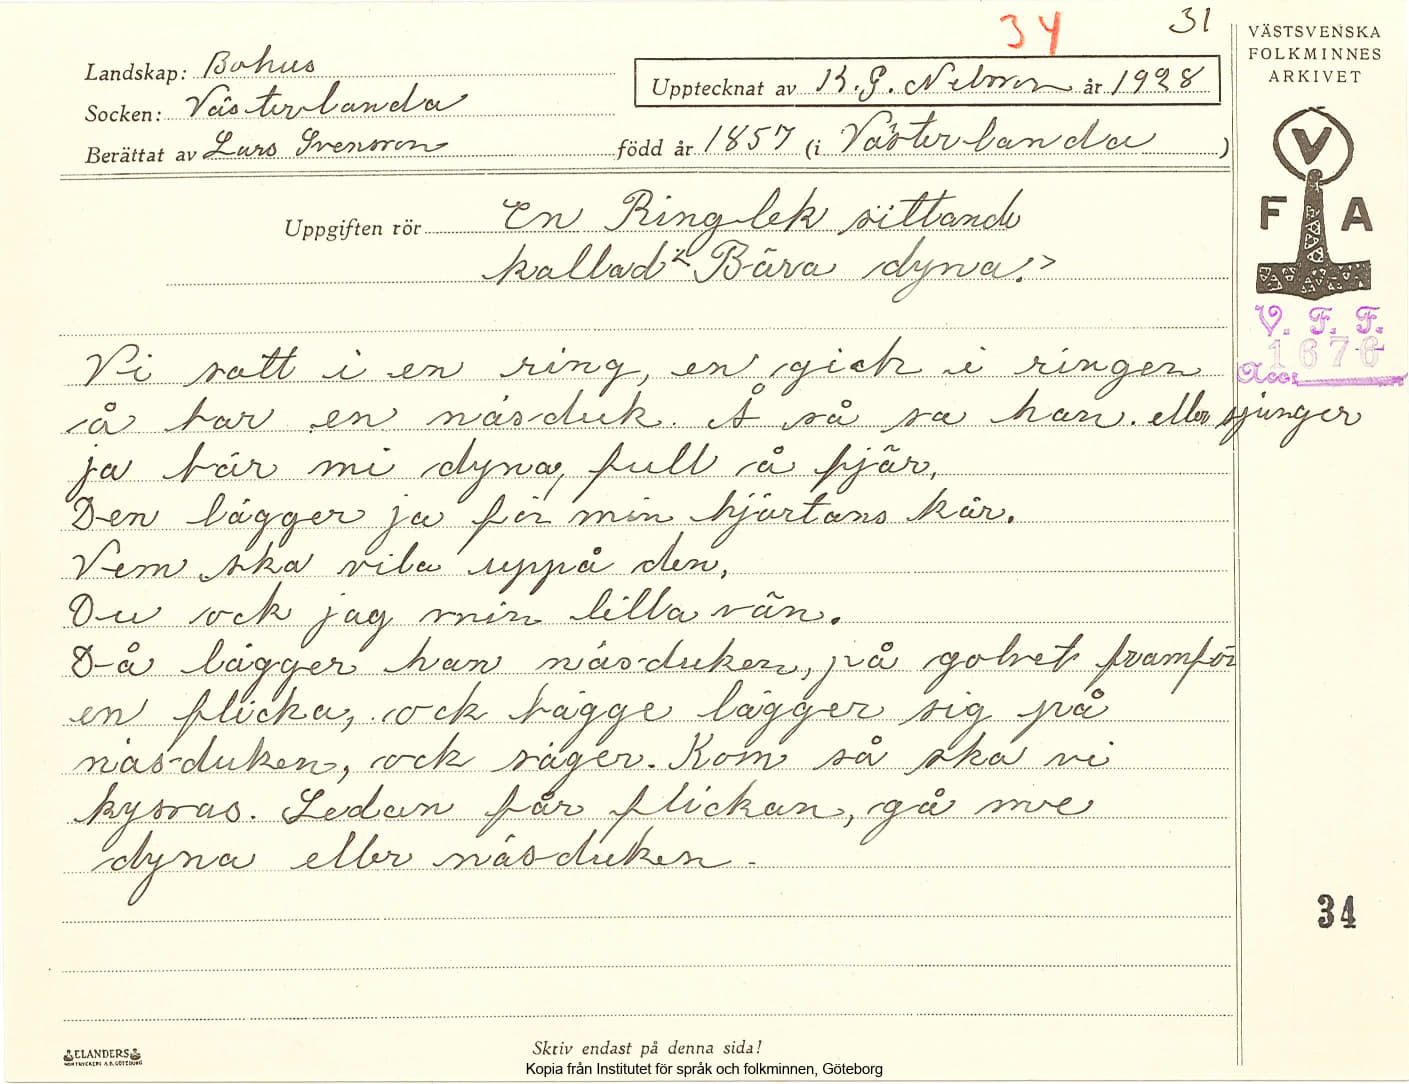 34 31
Landskap: Bohus
Upptecknat av K. G. Nilsson år 1928
Socken: Västerlanda
Berättat av Lars Svensson född år 1857 (i Västerlanda)
VÄSTSVENSKA
FOLKMINNES
ARKIVET
V
F A
V. F. F.
Acc: 1676
Uppgiften rör En Ringlek sittande
kallad "Bära dyna."
Vi satt i en ring, en gick i ringen
å bar en näsduk. Å så sa han. eller sjunger
ja bär mi dyna, full å fjär,
Den lägger ja för min hjärtans kär.
Vem ska vila uppå den,
Du ock jag min lilla vän.
Då lägger han näsduken, på golvet framför
en flicka, ock bägge lägger sig på
näsduken, ock säger. Kom så ska vi
kyssas. Sedan får flickan, gå me
dyna eller näsduken.
34
ELANDERS
BOKTRYCKERI A.B. GÖTEBORG
Skriv endast på denna sida!
Kopia från Institutet för språk och folkminnen, Göteborg